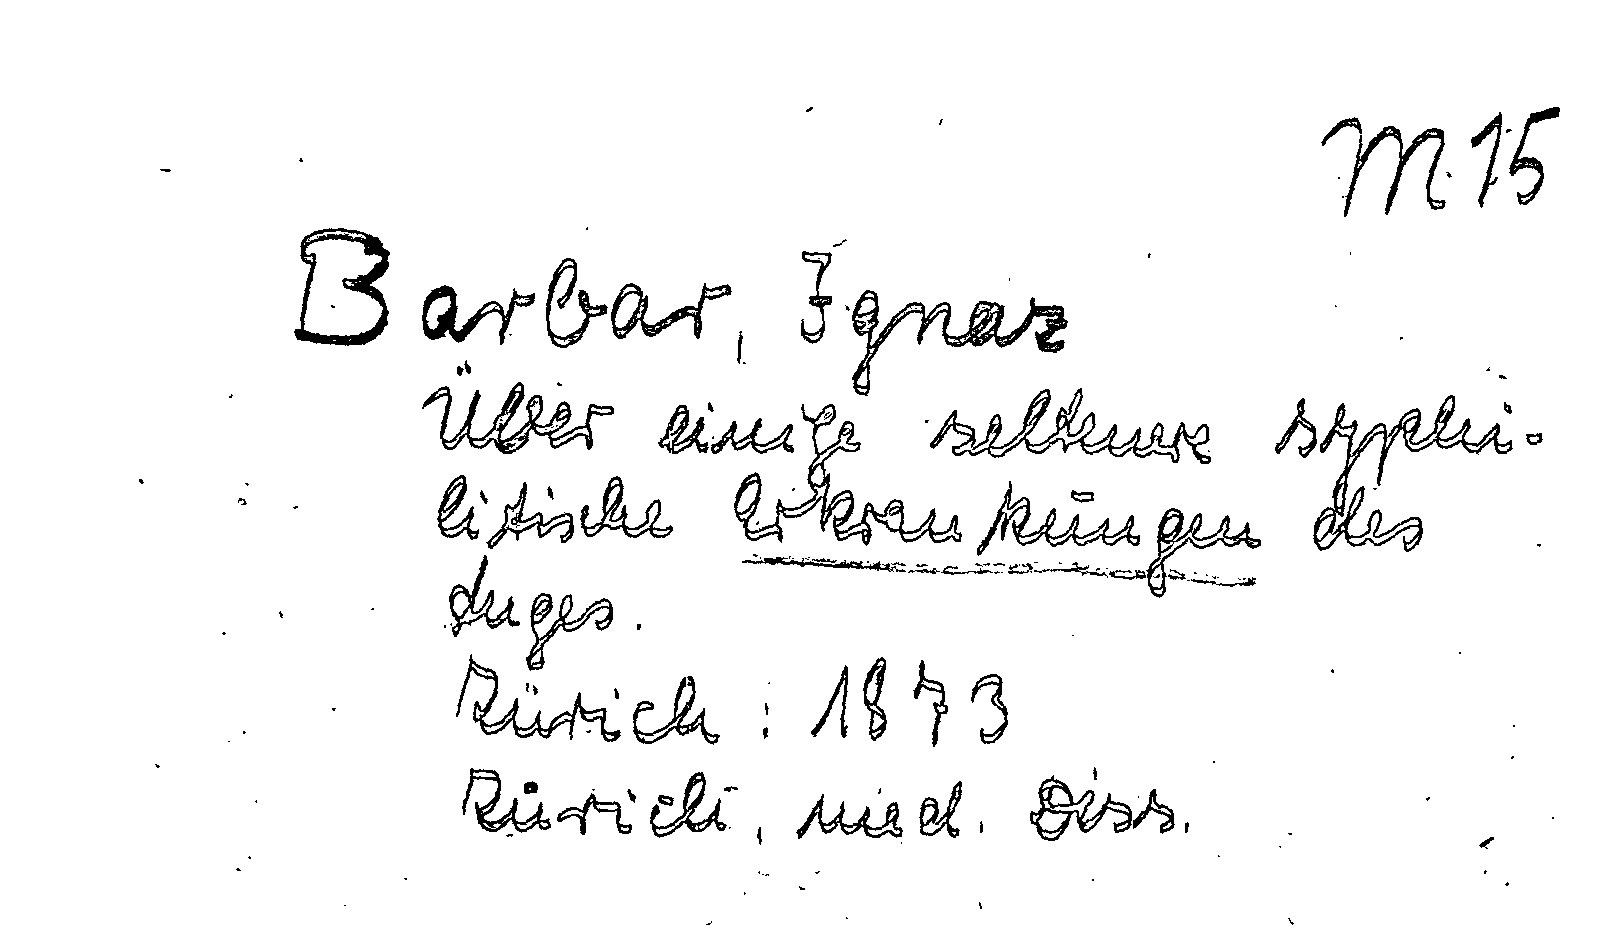 M 15
Barbar, Ignaz
Über einige seltenere syphi-
litische Erkrankungen des
Auges.
Zürich : 1873
Zürich, med. Diss.